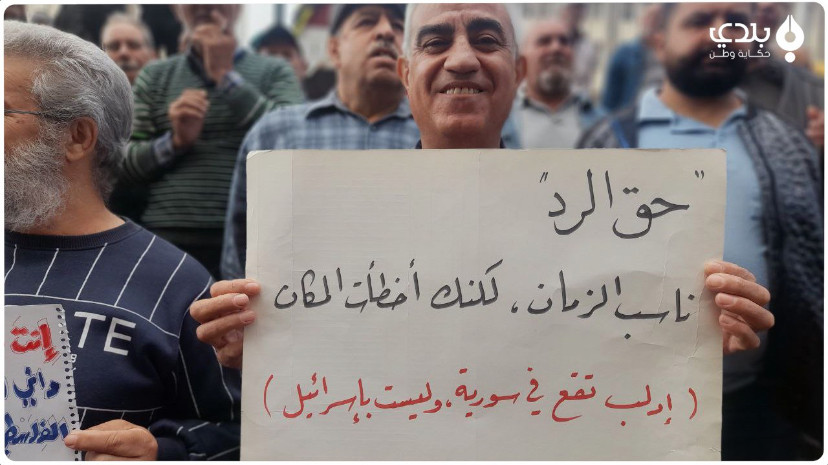 بلدي
حكاية وطن
"حق الرد"
ناسب الزمان، لكنك أخطأت المكان
(إدلب تقع في سورية، وليست بإسرائيل)
TE
إنت